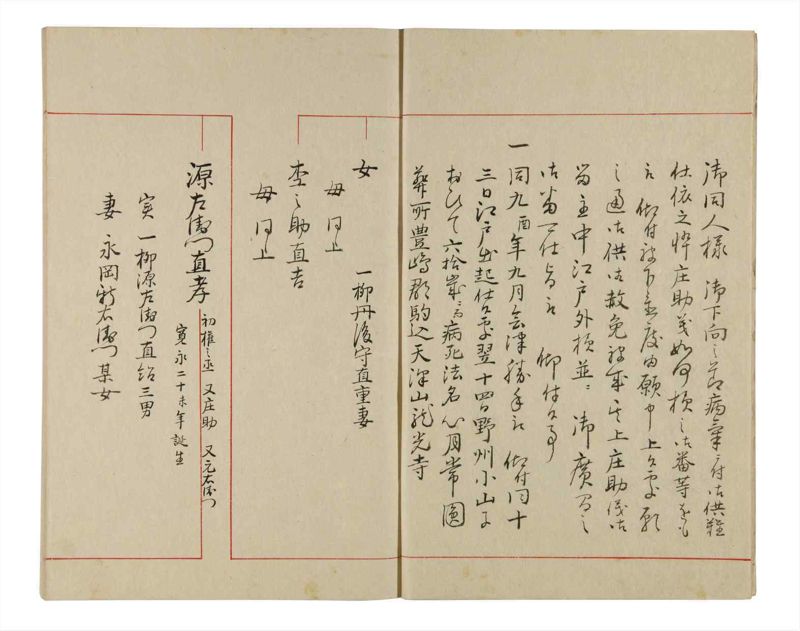 御同人様 御下向之節病氣ニ付御供難
仕依之悴庄助義如何様之御番等をも
被 仰付被下置度由願申上候処願
之通御供御赦免被成其上庄助儀御
留主中江戸外様並ニ 御廣間之
御番可仕旨被 仰付候事
一 同九酉年九月会津勝手被 仰付同十
三日江戸出起仕候処翌十四日野州小山ニ
おひて六拾歳ニ而病死法名心月常圓
葬所豊嶋郡駒込天澤山龍光寺
女 一柳丹後守直重妻
母 同上
杢之助直吉
母 同上
源左衛門直孝 初権之丞 又庄助 又元右衛門
寛永二十未年誕生
実 一柳源左衛門直 三男
妻 永岡新右衛門某女